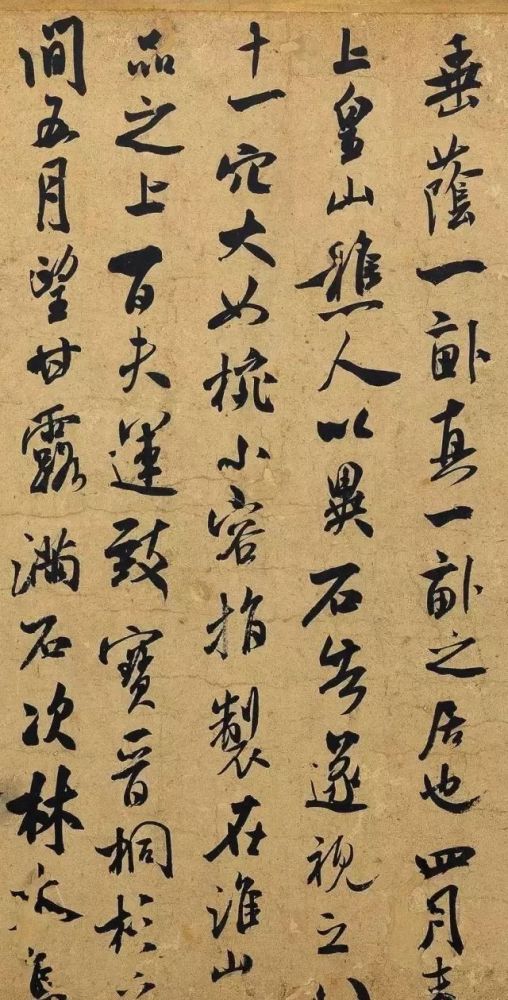 垂蔭一畝真一畝之居也四月
上皇山樵人以異石告遂視之八
十一穴大如椀小容指製在淮山
品之上百夫運致寶晉桐杉之
間五月望甘露滿石次林